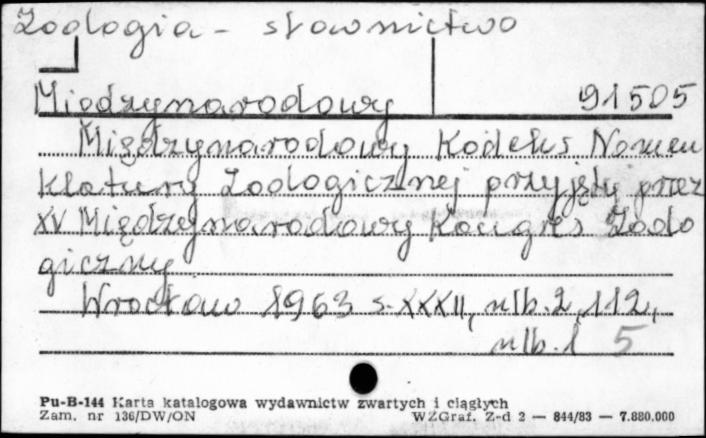 Zoologia - słownictwo
Międzynarodowy 91505
Międzynarodowy Kodeks Nomen
klatury Zoologicznej przyjęty przez
XV Międzynarodowy Kongres Zoolo
giczny
Wrocław 1963 s. XXXII, nlb. 2, 112,
nlb. 1 5
Pu-B-144 Karta katalogowa wydawnictw zwartych i ciągłych
Zam. nr 136/DW/ON WZGraf. Z-d 2 — 844/83 — 7.880.000